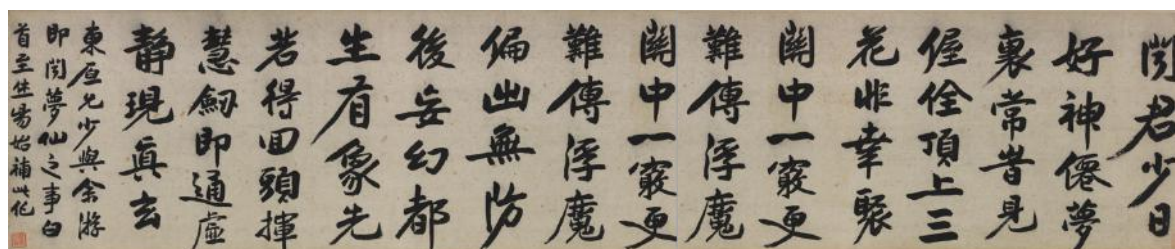 聞君少日
好神僊夢
裏常旹見
偓佺頂上三
花非幸聚
關中一竅更
難傳浮魔
關中一竅更
難傳浮魔
偏出無防
後妄幻都
生有象先
若得回頭揮
慧劒即通虛
靜現真玄
東原兄少與余游
即聞夢仙之事白
首至維揚始補此作